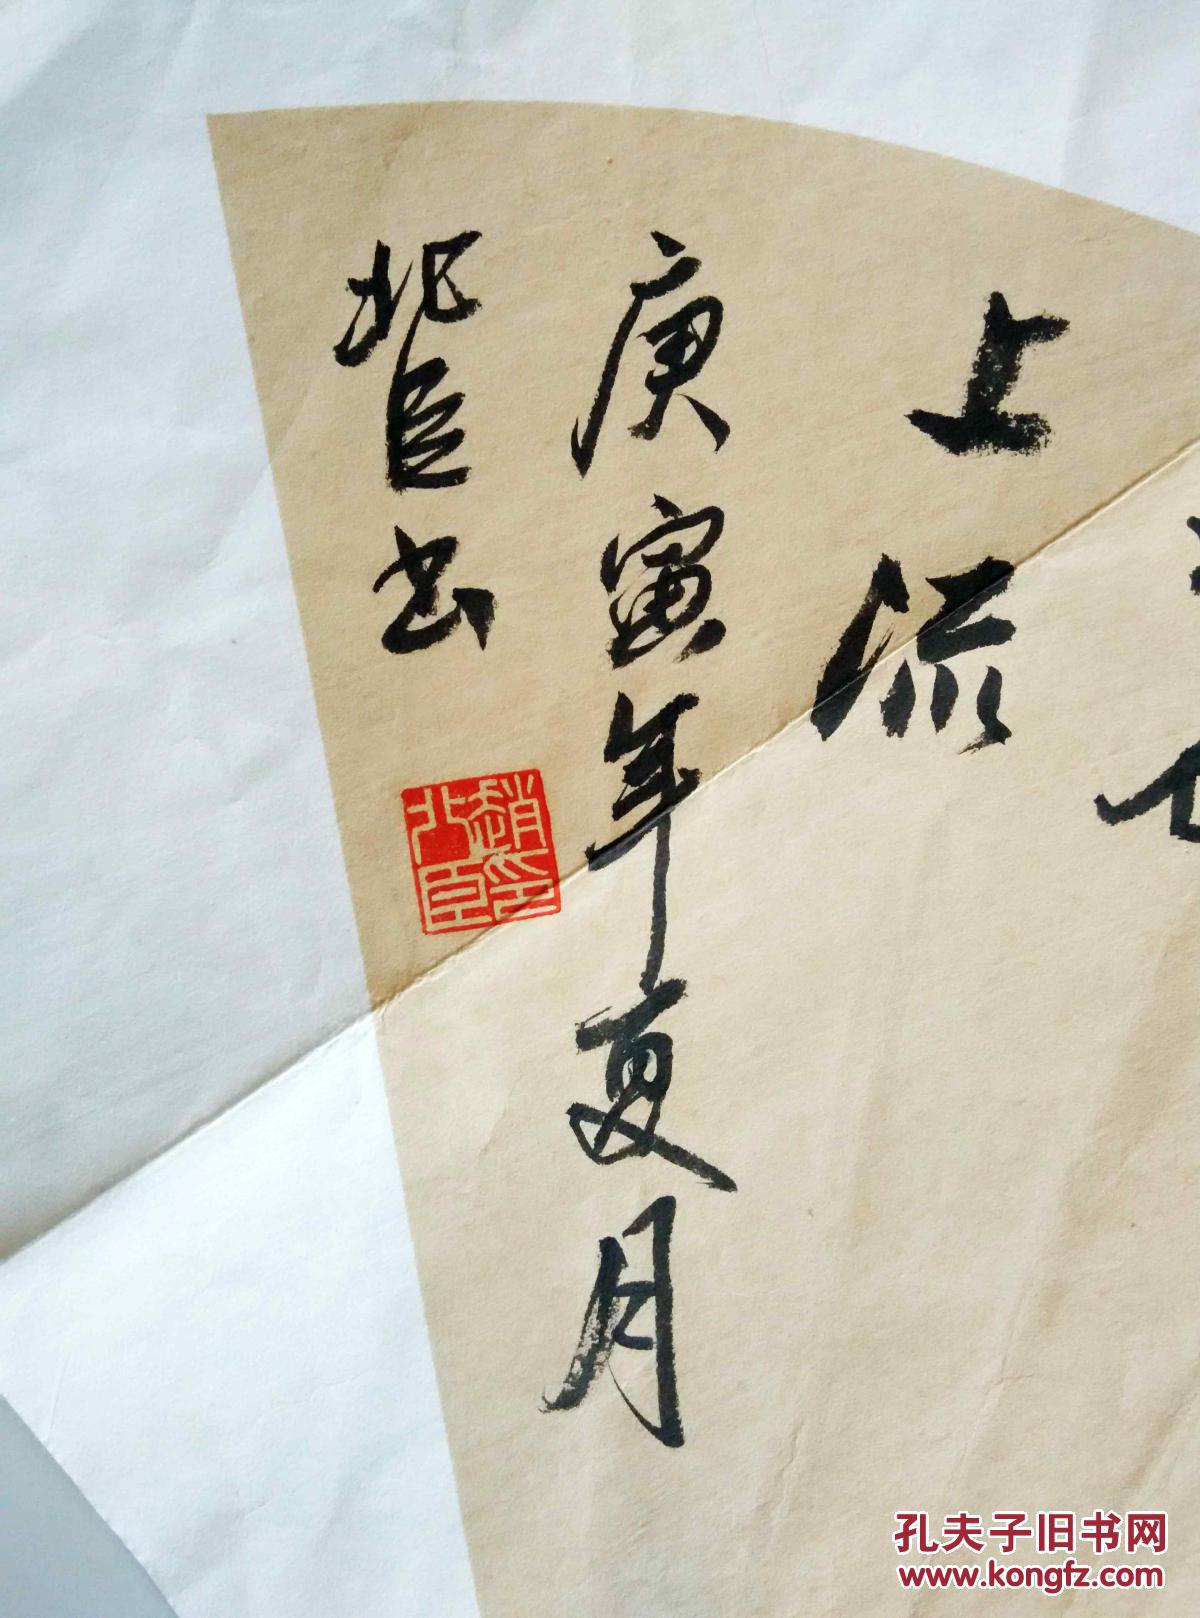 上流
庚寅年夏月
北臣书
趙印北臣
孔夫子旧书网
www.kongfz.com